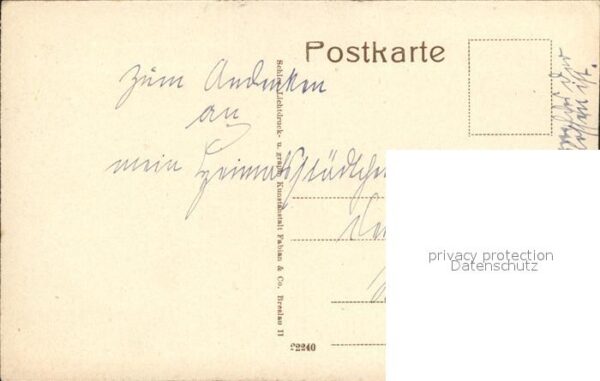 Postkarte
Zum Andenken
an
mein Heimatstädtchen
Schles. Lichtdruck- u. graph. Kunstanstalt Fabian & Co. Breslau II
22240
privacy protection
Datenschutz